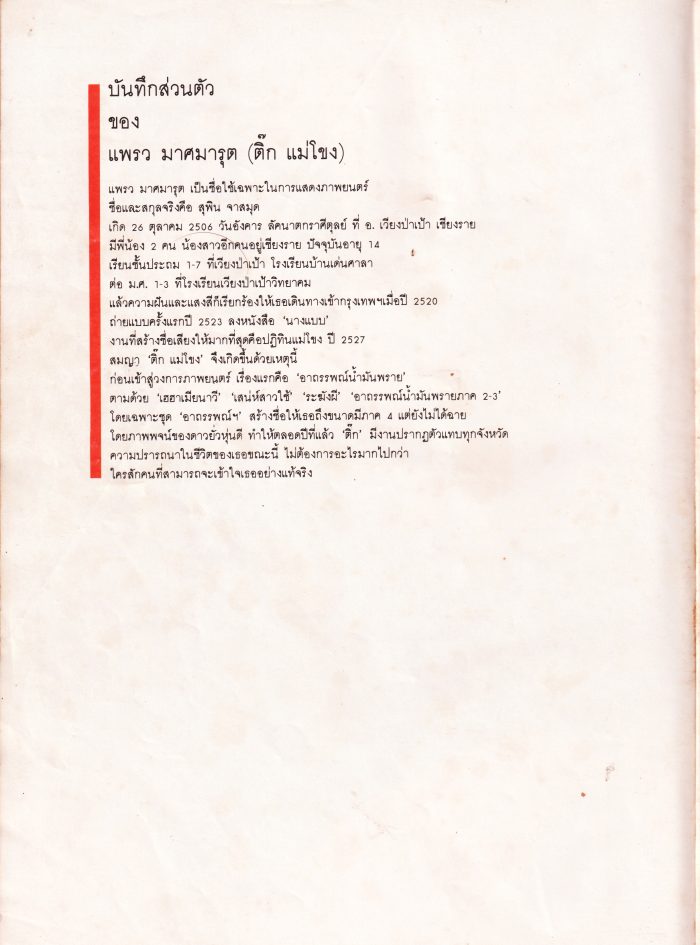 บันทึกส่วนตัว
ของ
แพรว มาศมารุต (ติ๊ก แม่โขง)
แพรว มาศมารุต เป็นชื่อใช้เฉพาะในการแสดงภาพยนตร์
ชื่อและสกุลจริงคือ สุพิน จาสมุด
เกิด 26 ตุลาคม 2506 วันอังคาร ลัคนาตกราศีตุลย์ ที่ อ. เวียงป่าเป้า เชียงราย
มีพี่น้อง 2 คน น้องสาวอีกคนอยู่เชียงราย ปัจจุบันอายุ 14
เรียนชั้นประถม 1-7 ที่เวียงป่าเป้า โรงเรียนบ้านเด่นศาลา
ต่อ ม.ศ. 1-3 ที่โรงเรียนเวียงป่าเป้าวิทยาคม
แล้วความฝันและแสงสีก็เรียกร้องให้เธอเดินทางเข้ากรุงเทพฯเมื่อปี 2520
ถ่ายแบบครั้งแรกปี 2523 ลงหนังสือ ‘นางแบบ’
งานที่สร้างชื่อเสียงให้มากที่สุดคือปฏิทินแม่โขง ปี 2527
สมญา ‘ติ๊ก แม่โขง’ จึงเกิดขึ้นด้วยเหตุนี้
ก่อนเข้าสู่วงการภาพยนตร์ เรื่องแรกคือ ‘อาถรรพณ์น้ำมันพราย’
ตามด้วย ‘เฮฮาเมียนาวี’ ‘เสน่ห์สาวใช้’ ‘ระฆังผี’ ‘อาถรรพณ์น้ำมันพรายภาค 2-3’
โดยเฉพาะชุด ‘อาถรรพณ์ฯ’ สร้างชื่อให้เธอถึงขนาดมีภาค 4 แต่ยังไม่ได้ฉาย
โดยภาพพจน์ของดาวยั่วหุ่นดี ทำให้ตลอดปีที่แล้ว ‘ติ๊ก’ มีงานปรากฏตัวแทบทุกจังหวัด
ความปรารถนาในชีวิตของเธอขณะนี้ ไม่ต้องการอะไรมากไปกว่า
ใครสักคนที่สามารถจะเข้าใจเธออย่างแท้จริง